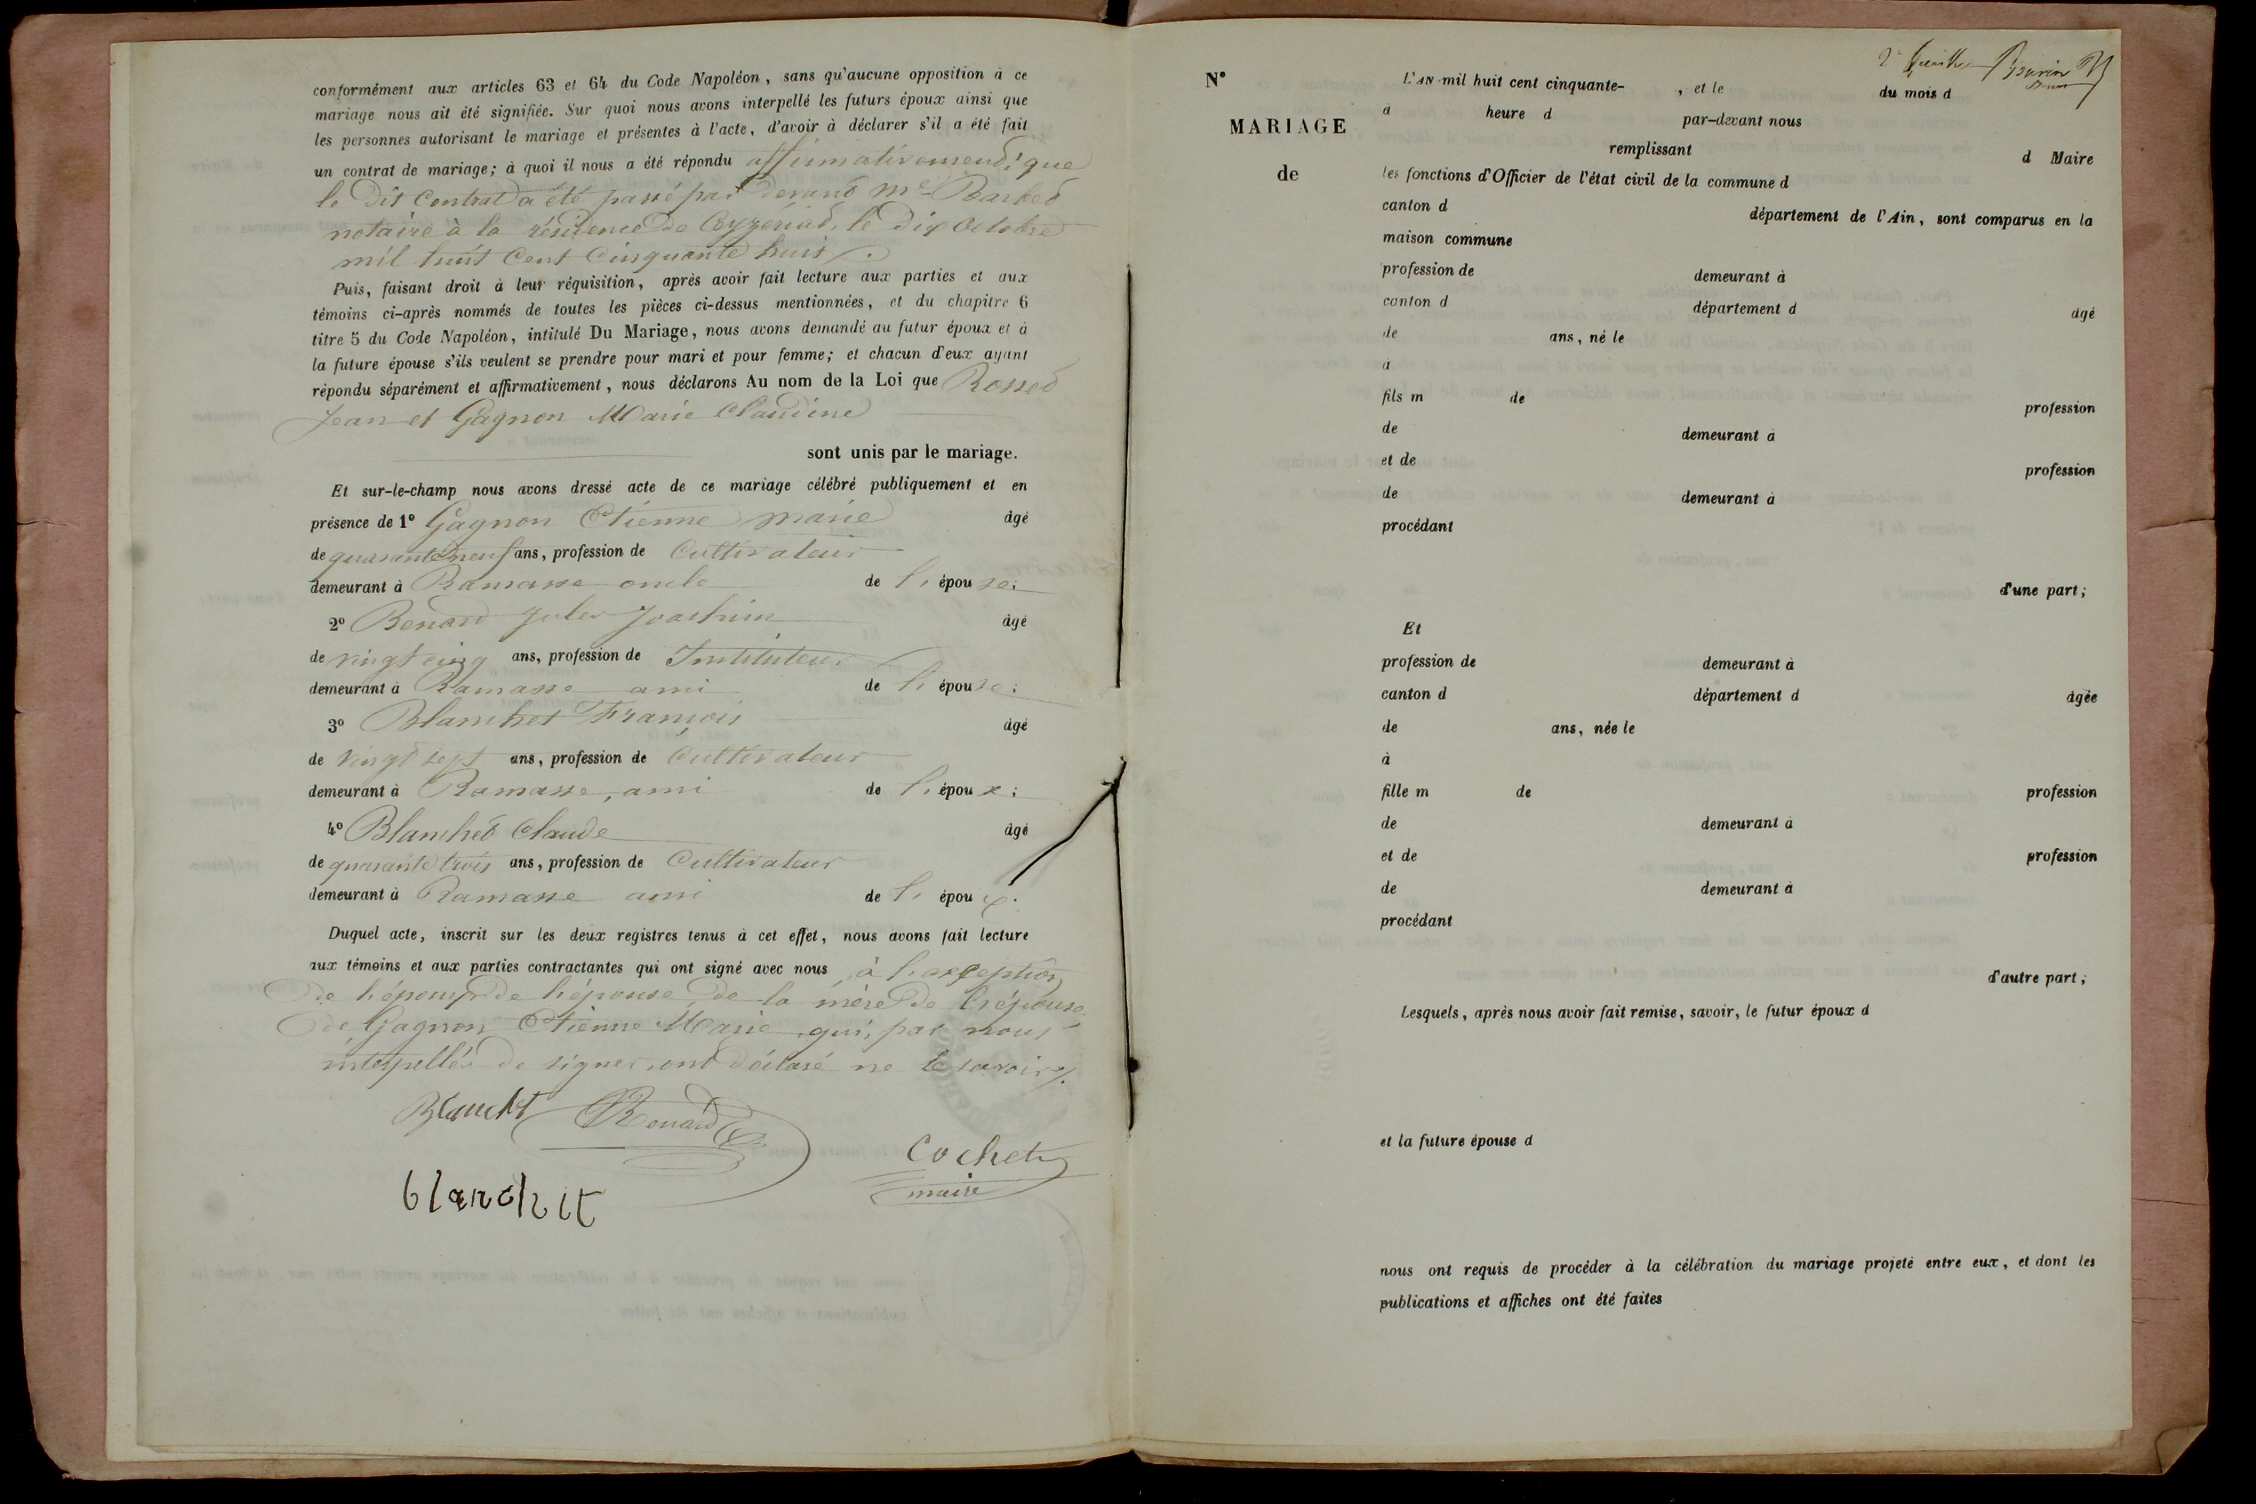 conformément aux articles 63 et 64 du Code Napoléon, sans qu'aucune opposition à ce
mariage nous ait été signifiée. Sur quoi nous avons interpellé les futurs époux ainsi que
les personnes autorisant le mariage et présentes à l'acte, d'avoir à déclarer s'il a été fait
un contrat de mariage; à quoi il nous a été répondu affirmativement, que
le dit Contrat a été passé par devant Me Barbet
notaire à la résidence de Ceyzeriat, le dix Octobre
mil huit Cent Cinquante huit.
Puis, faisant droit à leur réquisition, après avoir fait lecture aux parties et aux
témoins ci-après nommés de toutes les pièces ci-dessus mentionnées, et du chapitre 6
titre 5 du Code Napoléon, intitulé Du Mariage, nous avons demandé au futur époux et à
la future épouse s'ils veulent se prendre pour mari et pour femme; et chacun d'eux ayant
répondu séparément et affirmativement, nous déclarons Au nom de la Loi que Rosset
Jean et Gagnon Marie Claudine
sont unis par le mariage.
Et sur-le-champ nous avons dressé acte de ce mariage célébré publiquement et en
présence de 1º Gagnon Etienne Marie âgé
de quarante neuf ans, profession de Cultivateur
demeurant à Ramasse oncle de l' épouse;
2º Renard Jules Joachim âgé
de vingt cinq ans, profession de Instituteur
demeurant à Ramasse ami de l' épouse;
3º Blanchet François âgé
de vingt sept ans, profession de Cultivateur
demeurant à Ramasse, ami de l' époux;
4º Blanchet Claude âgé
de quarante trois ans, profession de Cultivateur
demeurant à Ramasse ami de l' époux.
Duquel acte, inscrit sur les deux registres tenus à cet effet, nous avons fait lecture
aux témoins et aux parties contractantes qui ont signé avec nous à l'exception
de l'époux, de l'épouse, de la mère de l'épouse,
de Gagnon Etienne Marie, qui, par nous
interpellés de signer, ont déclaré ne le savoir.
Blanchet Renard
Cochet
maire
blanchet
2e feuillet
Nº
MARIAGE
de
L'AN mil huit cent cinquante- , et le du mois d
à heure d par-devant nous
remplissant d Maire
les fonctions d'Officier de l'état civil de la commune d
canton d département de l'Ain, sont comparus en la
maison commune
profession de demeurant à
canton d département d âgé
de ans, né le
à
fils m de profession
de demeurant à
et de profession
de demeurant à
procédant
d'une part;
Et
profession de demeurant à
canton d département d âgée
de ans, née le
à
fille m de profession
de demeurant à
et de profession
de demeurant à
procédant
d'autre part;
Lesquels, après nous avoir fait remise, savoir, le futur époux d
et la future épouse d
nous ont requis de procéder à la célébration du mariage projeté entre eux, et dont les
publications et affiches ont été faites